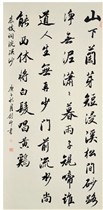 山下蘭芽短浸溪松間沙路
淨無泥瀟瀟暮雨子規啼誰
道人生無再少門前流水尚
能西休將白髮唱黃鷄
蘇軾詞浣溪沙